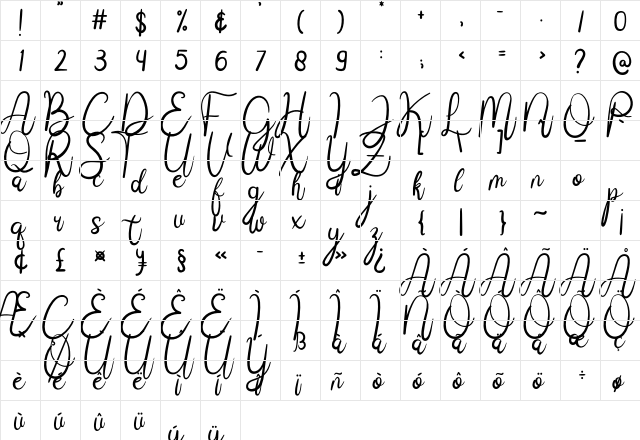 ! " # $ % & ' ( ) * + , - . / 0
1 2 3 4 5 6 7 8 9 : ; < = > ? @
A B C D E F G H I J K L M N O P
Q R S T U V W X Y Z [ \ ] _
a b c d e f g h i j k l m n o p
q r s t u v w x y z { | } ~ ¡
¢ £ ¤ ¥ § « ¯ ± » ¿ À Á Â Ã Ä Å
Æ Ç È É Ê Ë Ì Í Î Ï Ñ Ò Ó Ô Õ Ö
× Ø Ù Ú Û Ü Ý ß à á â ã ä å æ ç
è é ê ë ì í î ï ñ ò ó ô õ ö ÷ ø
ù ú û ü ý ÿ